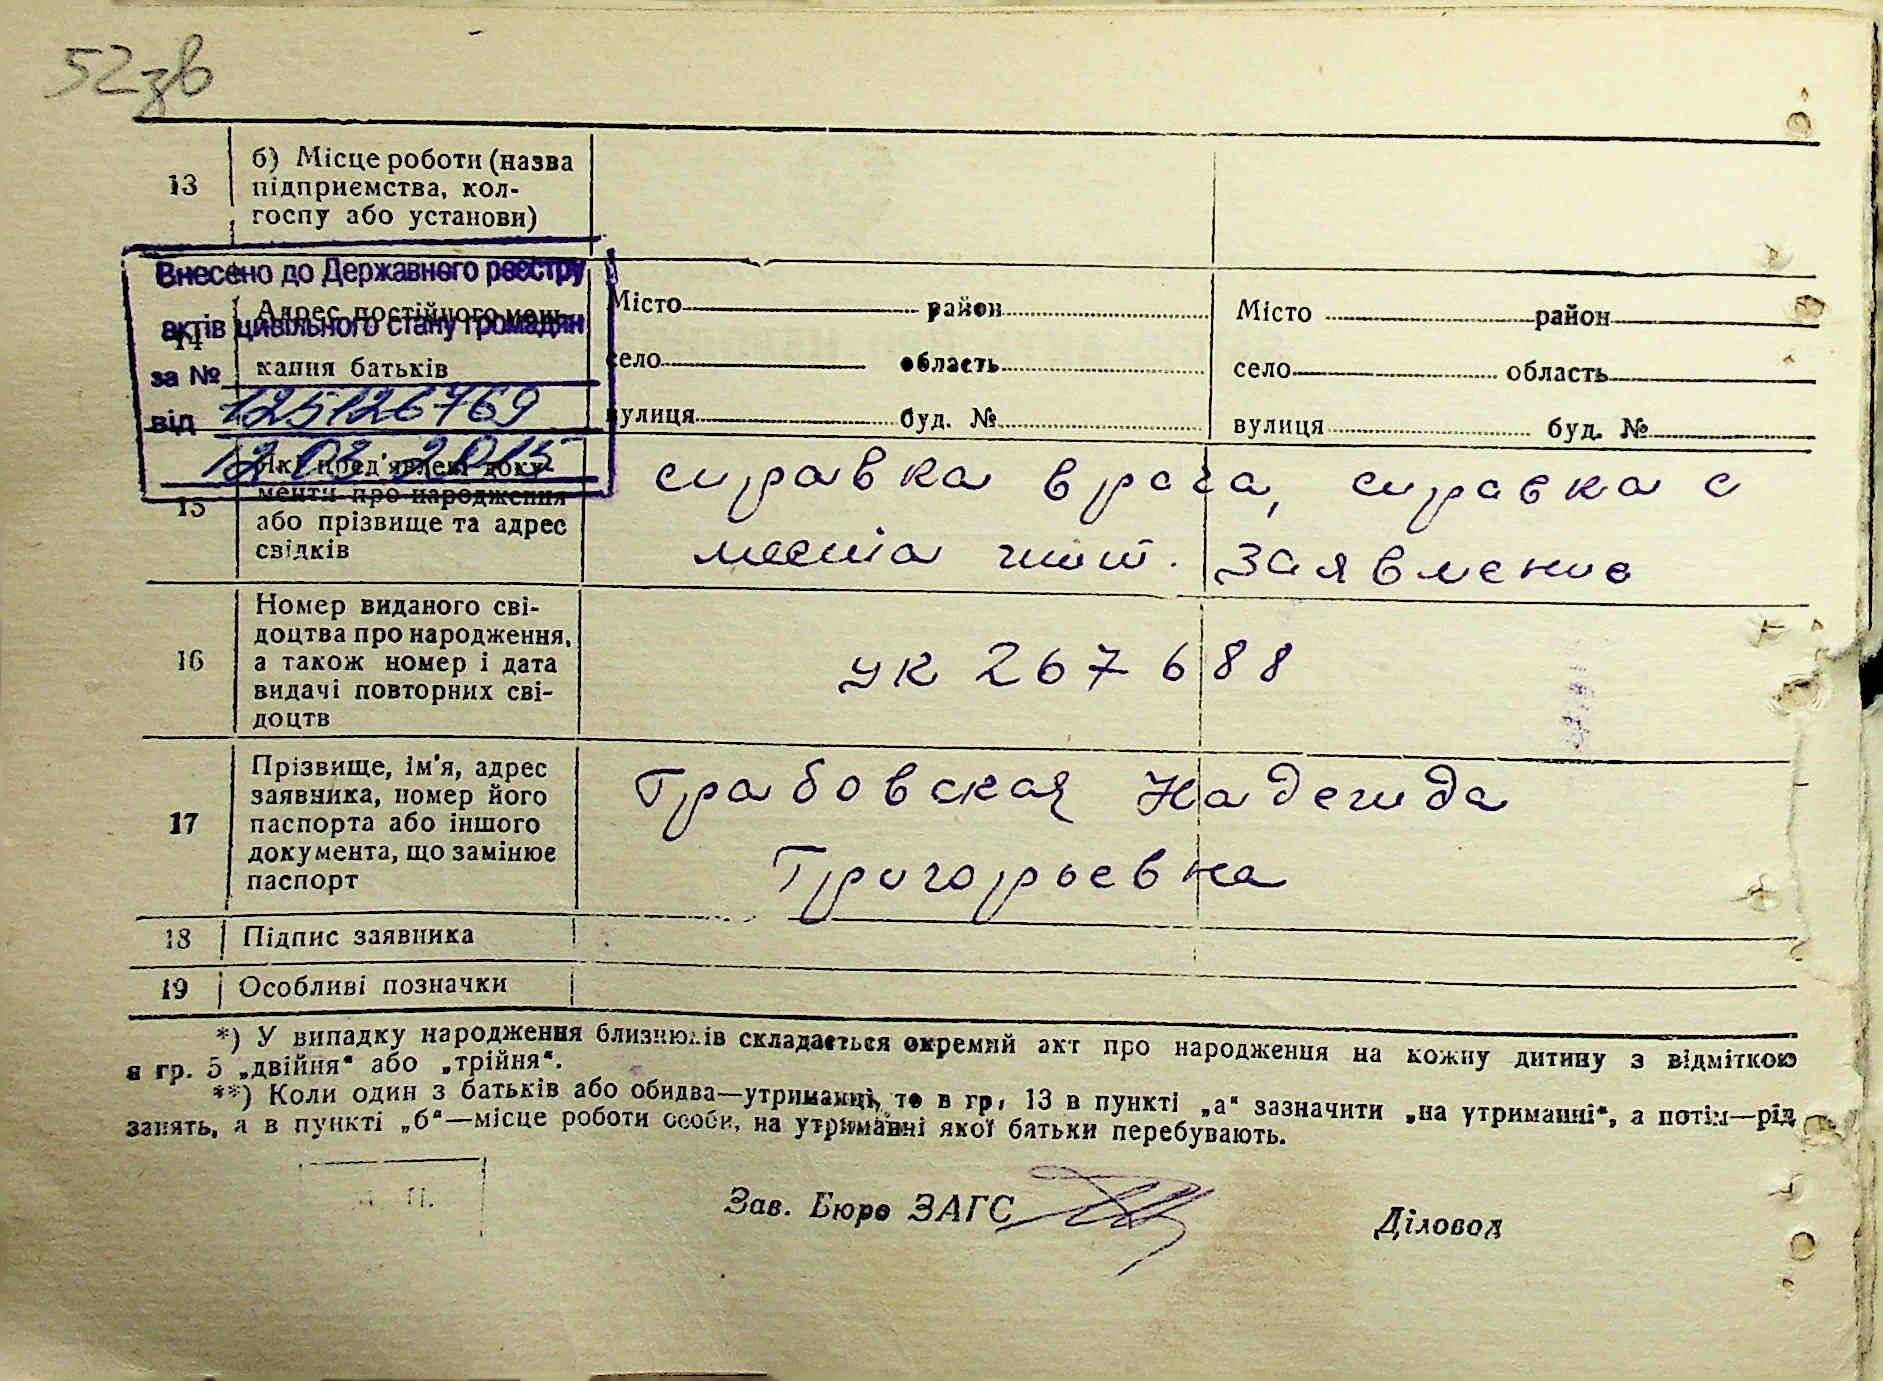 52зв
13 б) Місце роботи (назва
підприємства, кол-
госпу або установи)
Внесено до Державного реєстру
актів цивільного стану громадян
за № 125126769
від 12 03 2015
14 Адрес постійного меш-
кання батьків
Місто район Місто район
село область село область
вулиця буд. № вулиця буд. №
15 Які пред'явлені доку-
менти про народження
або прізвище та адрес
свідків
справка врача, справка с
места жит. заявление
16 Номер виданого сві-
доцтва про народження,
а також номер і дата
видачі повторних сві-
доцтв
УК 267688
17 Прізвище, ім'я, адрес
заявника, номер його
паспорта або іншого
документа, що замінює
паспорт
Грабовская Надежда
Григорьевна
18 Підпис заявника
19 Особливі позначки
*) У випадку народження близнюків складається окремий акт про народження на кожну дитину з відміткою
в гр. 5 „двійня“ або „трійня“.
**) Коли один з батьків або обидва—утриманці, то в гр. 13 в пункті „а“ зазначити „на утриманні“, а потім—рід
занять, а в пункті „б“—місце роботи особи, на утриманні якої батьки перебувають.
М. П.
Зав. Бюро ЗАГС Діловод